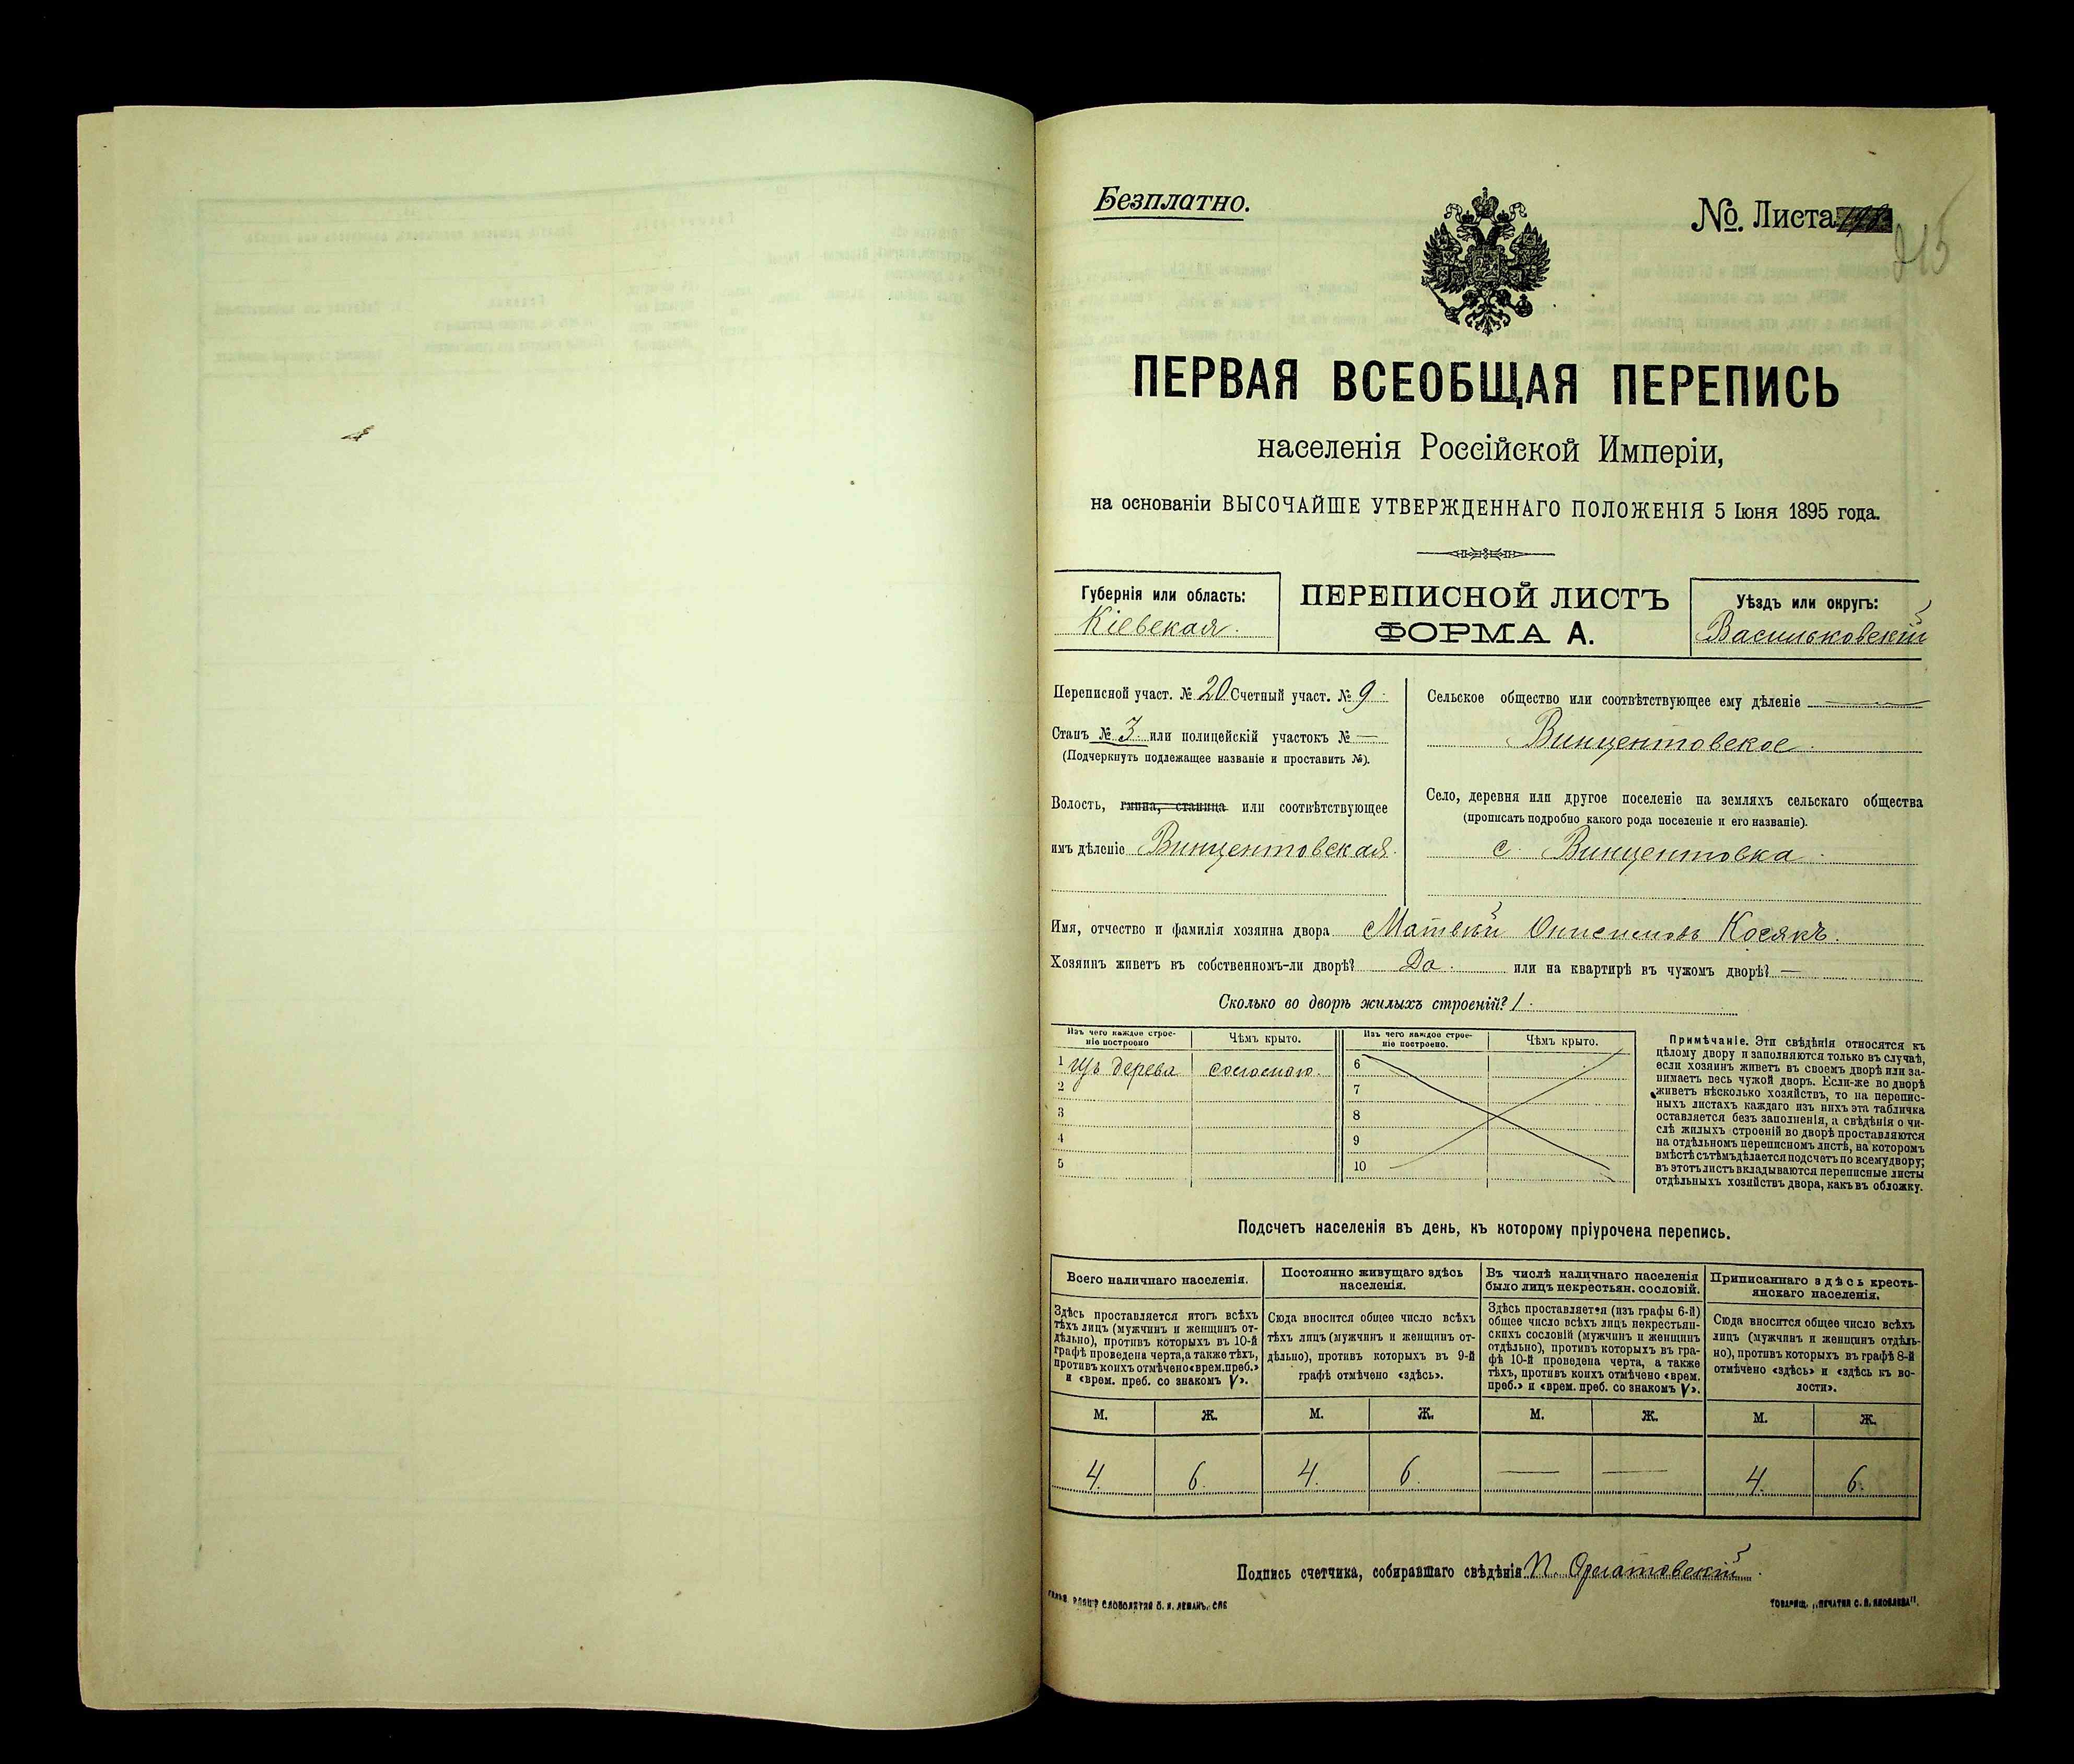 Безплатно.
№ Листа
215
ПЕРВАЯ ВСЕОБЩАЯ ПЕРЕПИСЬ
населенія Россійской Имперіи,
на основаніи ВЫСОЧАЙШЕ УТВЕРЖДЕННАГО ПОЛОЖЕНІЯ 5 Іюня 1895 года.
Губернія или область:
Кіевская.
ПЕРЕПИСНОЙ ЛИСТЪ
ФОРМА А.
Уѣздъ или округъ:
Васильковскій
Переписной участ. № 20 Счетный участ. № 9.
Станъ № 3. или полицейскій участокъ № —
(Подчеркнуть подлежащее названіе и проставить №).
Волость, гмина, станица или соотвѣтствующее
имъ дѣленіе Винцентовская.
Сельское общество или соотвѣтствующее ему дѣленіе —
Винцентовское.
Село, деревня или другое поселеніе на земляхъ сельскаго общества
(прописать подробно какого рода поселеніе и его названіе).
с. Винцентовка.
Имя, отчество и фамилія хозяина двора Матвѣй Онисимовъ Косякъ.
Хозяинъ живетъ въ собственномъ-ли дворѣ? Да. или на квартирѣ въ чужомъ дворѣ? —
Сколько во дворѣ жилыхъ строеній? 1.
Изъ чего каждое строе-
ніе построено
Чѣмъ крыто.
Изъ чего каждое строе-
ніе построено.
Чѣмъ крыто.
1 Изъ дерева соломою.
2
3
4
5
6
7
8
9
10
Примѣчаніе. Эти свѣдѣнія относятся къ
цѣлому двору и заполняются только въ случаѣ,
если хозяинъ живетъ въ своемъ дворѣ или за-
нимаетъ весь чужой дворъ. Если-же во дворѣ
живетъ нѣсколько хозяйствъ, то на перепис-
ныхъ листахъ каждаго изъ нихъ эта табличка
оставляется безъ заполненія, а свѣдѣнія о чи-
слѣ жилыхъ строеній во дворѣ проставляются
на отдѣльномъ переписномъ листѣ, на которомъ
вмѣстѣ съ тѣмъ дѣлается подсчетъ по всему двору;
въ этотъ листъ вкладываются переписные листы
отдѣльныхъ хозяйствъ двора, какъ въ обложку.
Подсчетъ населенія въ день, къ которому пріурочена перепись.
Всего наличнаго населенія.
Здѣсь проставляется итогъ всѣхъ
тѣхъ лицъ (мужчинъ и женщинъ от-
дѣльно), противъ которыхъ въ 10-й
графѣ проведена черта, а также тѣхъ,
противъ коихъ отмѣчено «врем. преб.»
и «врем. преб. со знакомъ V».
Постоянно живущаго здѣсь
населенія.
Сюда вносится общее число всѣхъ
тѣхъ лицъ (мужчинъ и женщинъ от-
дѣльно), противъ которыхъ въ 9-й
графѣ отмѣчено «здѣсь».
Въ числѣ наличнаго населенія
было лицъ некрестьян. сословій.
Здѣсь проставляется (изъ графы 6-й)
общее число всѣхъ лицъ некрестьян-
скихъ сословій (мужчинъ и женщинъ
отдѣльно), противъ которыхъ въ гра-
фѣ 10-й проведена черта, а также
тѣхъ, противъ коихъ отмѣчено «врем.
преб.» и «врем. преб. со знакомъ V».
Приписаннаго здѣсь кресть-
янскаго населенія.
Сюда вносится общее число всѣхъ
лицъ (мужчинъ и женщинъ отдѣль-
но), противъ которыхъ въ графѣ 8-й
отмѣчено «здѣсь» и «здѣсь къ во-
лости».
М. Ж. М. Ж. М. Ж. М. Ж.
4. 6. 4. 6. — — 4. 6.
Подпись счетчика, собиравшаго свѣдѣнія П.
СЛОВОЛИТНЯ О. И. ЛЕМАНЪ, СПБ
ТОВАРИЩ. „ПЕЧАТНЯ С. П. ЯКОВЛЕВА".